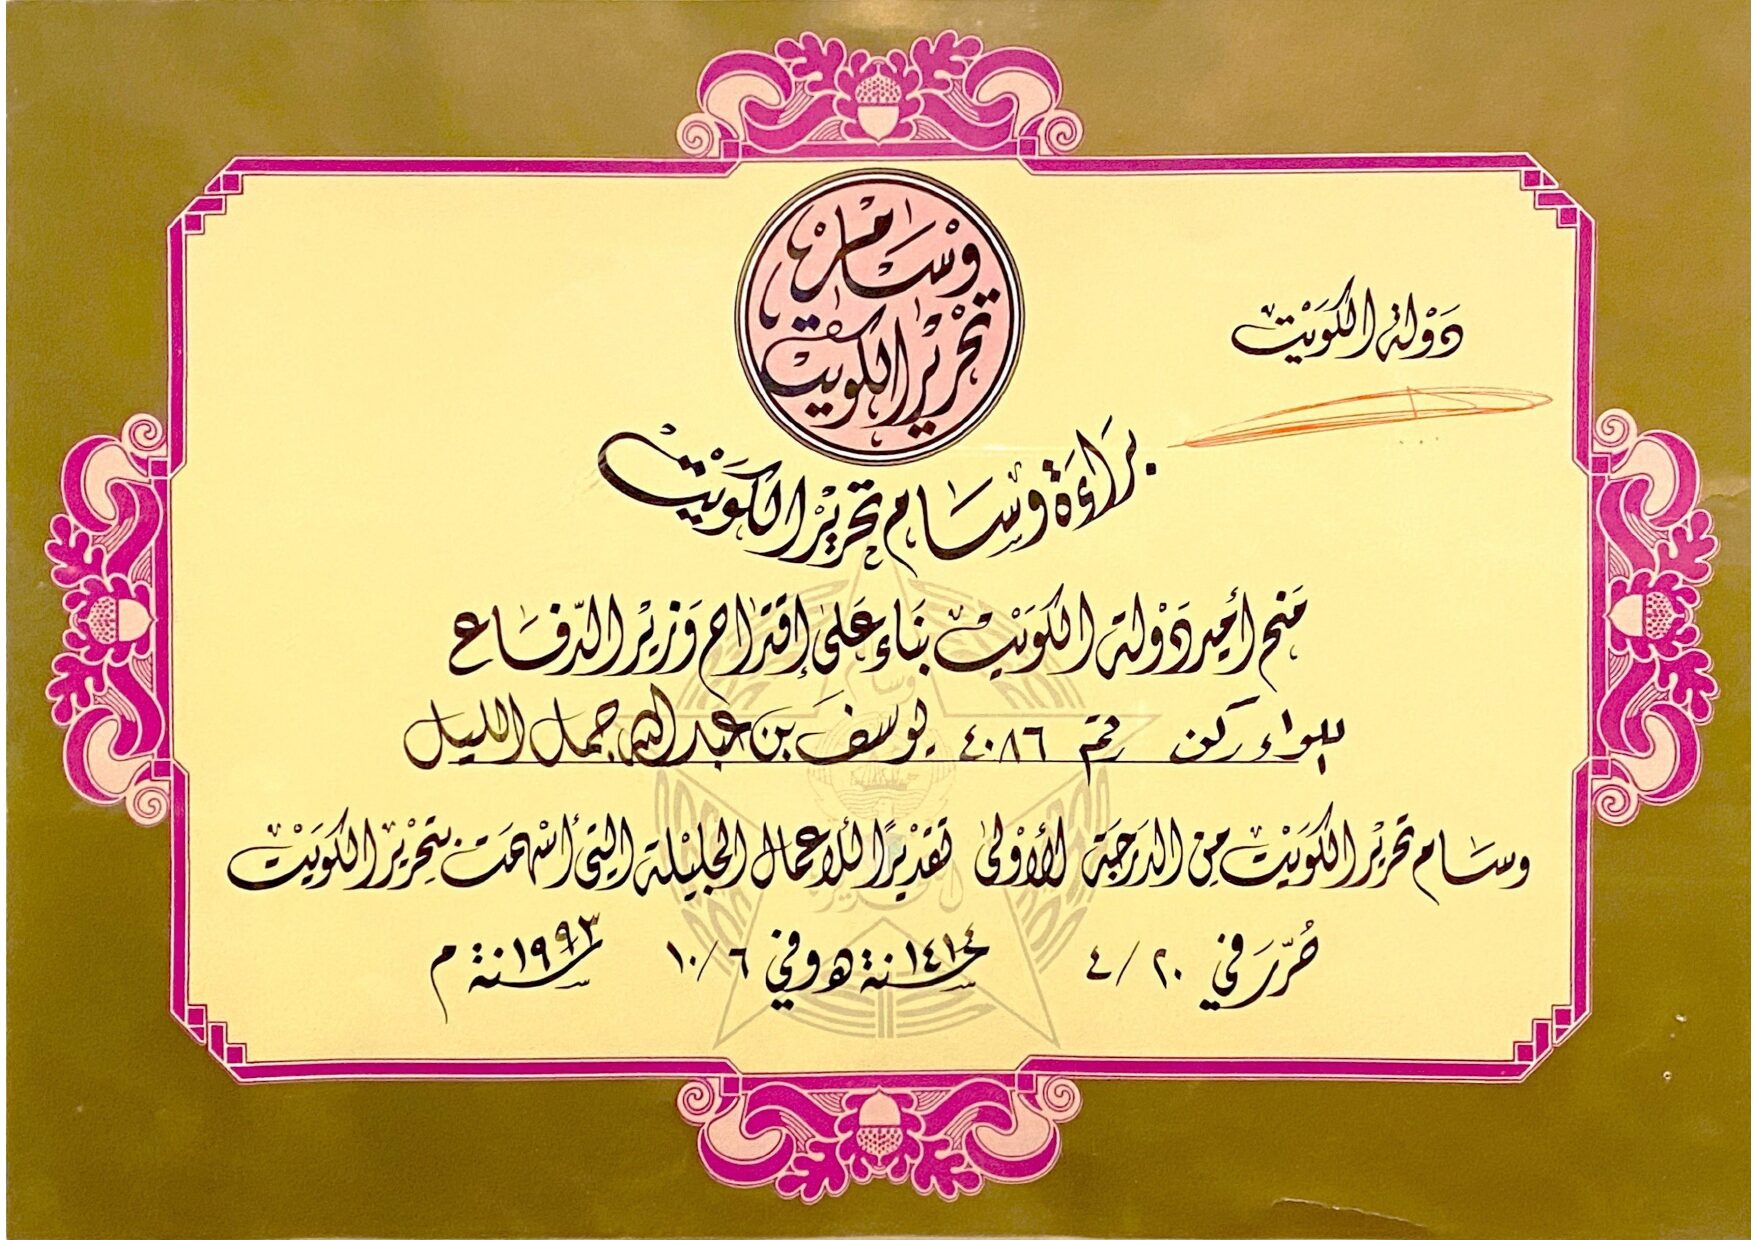 دولة الكويت
وسام
تحرير الكويت
براءة وسام تحرير الكويت
منح أمير دولة الكويت بناء على إقتراح وزير الدفاع
اللواء ركن رقم ٤٠٨٦ يوسف بن عبدالله جمل الليل
وسام تحرير الكويت من الدرجة الأولى تقديرًا للاعمال الجليلة التي أسهمت بتحرير الكويت
حُرّر في ٢٠ / ٤ سنة ١٤١٤ هـ وفي ٦ / ١٠ سنة ١٩٩٣ م